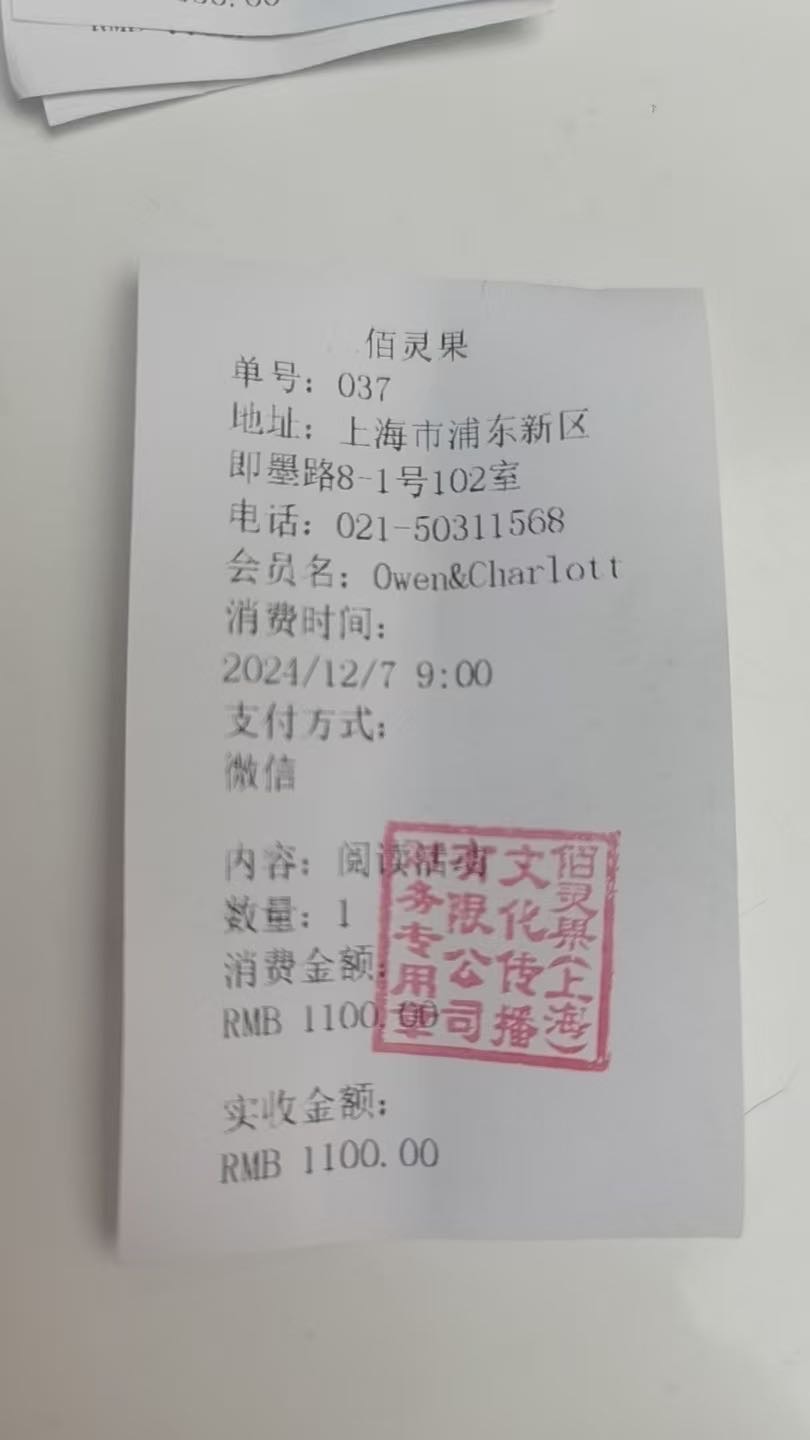 佰灵果
单号：037
地址：上海市浦东新区
即墨路8-1号102室
电话：021-50311568
会员名：Owen&Charlott
消费时间：
2024/12/7 9:00
支付方式：
微信
内容：阅读活动
数量：1
消费金额：
RMB 1100.00
实收金额：
RMB 1100.00
佰灵果（上海）
文化传播
有限公司
务专用章